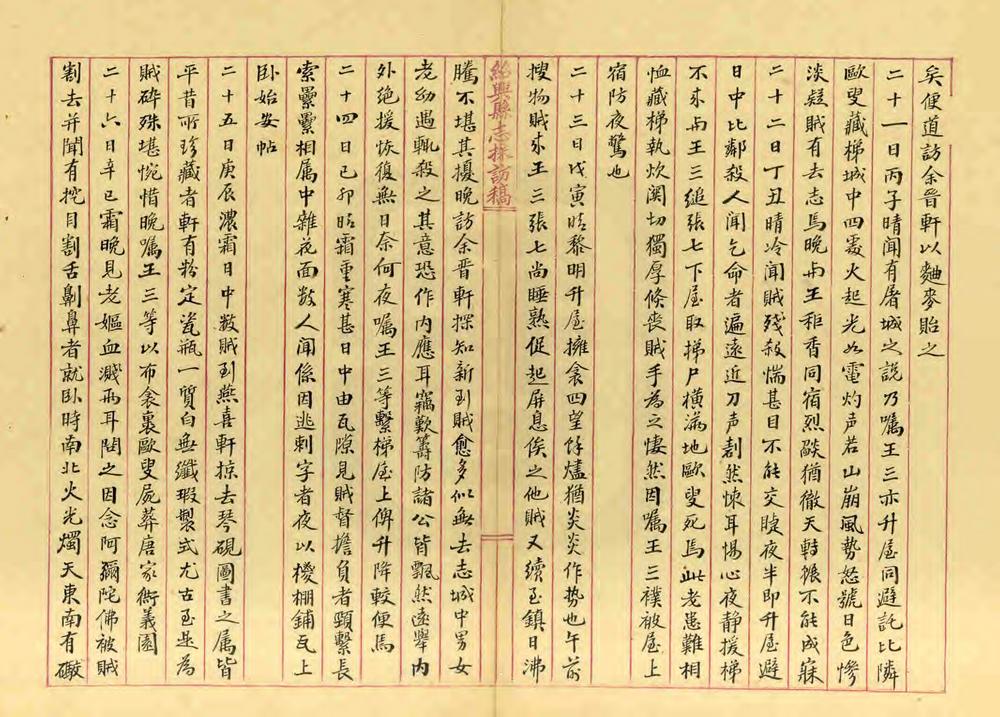 矣便道訪余晉軒以麯麥貽之
二十一日丙子晴聞有屠城之說乃囑王三亦升屋同避託比隣
歐叟藏梯城中四處火起光如電灼声若山崩風勢怒號日色慘
淡疑賊有去志馬晚與王秬香同宿烈燄猶徹天轉輾不能成寐
二十二日丁丑晴冷聞賊殘殺惴甚目不能交睫夜半即升屋避
日中比鄰殺人聞乞命者遍遠近刀声割然悚耳惕心夜靜援梯
不來與王三縋張七下屋取梯尸橫滿地歐叟死焉此老患難相
恤藏梯執炊関切獨厚倏喪賊手為之悽然因囑王三襆被屋上
宿防夜驚也
二十三日戊寅晴黎明升屋擁衾四望餘燼猶炎炎作勢也午前
搜物賊來王三張七尚睡熟促起屏息俟之他賊又續至鎮日沸
紹興縣志採訪稿
騰不堪其擾晚訪余晋軒探知新到賊愈多似無去志城中男女
老幼遇輒殺之其意恐作內應耳竊歎籌防諸公皆飄然遠舉內
外絶援恢復無日奈何夜囑王三等繫梯屋上俾升降較便焉
二十四日己卯晴霜重寒甚日中由瓦隙見賊督擔負者頸繫長
索纍纍相属中雜花面数人聞係因逃刺字者夜以機棚鋪瓦上
卧始安帖
二十五日庚辰濃霜日中数賊到燕喜軒掠去琴硯圖書之属皆
平昔所珍藏者軒有粉定瓷瓶一質白無纖瑕製式尤古至是為
賊碎殊堪惋惜晚囑王三等以布衾裹歐叟屍葬唐家衖義園
二十六日辛巳霜晚見老嫗血濺兩耳問之因念阿彌陀佛被賊
割去并聞有挖目割舌劓鼻者就卧時南北火光燭天東南有礮